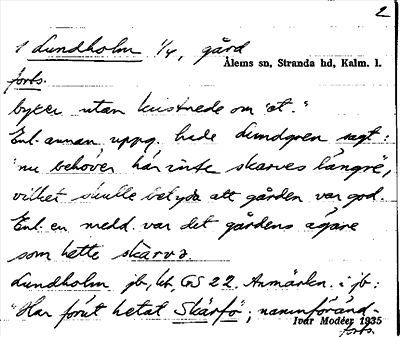 2
1 Lundholm 1/4, gård
Ålems sn, Stranda hd, Kalm. l.
forts.
byter utan knistrede om "et."
Enl. annan uppg. hade Lundgren sagt:
"nu behöver här inte skarves längre",
vilket skulle betyda att gården var god.
Enl. en meld. var det gårdens ägare
som hette skarva.
Lundholm jb, kt, GS 22. Anmärkn. i jb:
"Har förut hetat Skärfö"; namnföränd-
Ivar Modéer 1935
forts.